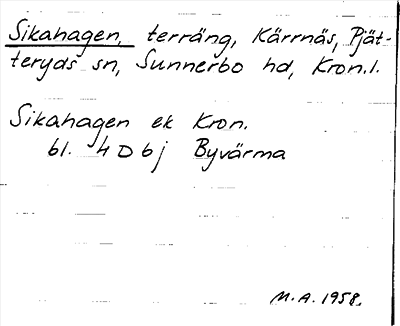 Sikahagen, terräng, Kärrnäs, Pjät-
teryds sn, Sunnerbo hd, Kron.l.
Sikahagen ek Kron.
bl. 4 D b j Byvärma
M.A. 1958.